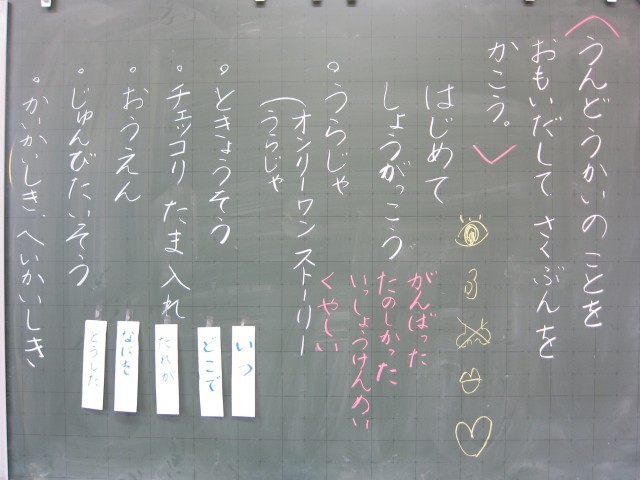 うんどうかいのことを
おもいだして さくぶんを
かこう。
はじめて
しょうがっこう
がんばった
たのしかった
いっしょうけんめい
くやしい
。うらじゃ
(オンリーワン ストーリー
うらじゃ
。ときょうそう
。チェッコリ たま入れ
。おうえん
。じゅんびたいそう
。かいかいしき、へいかいしき
いつ
どこで
だれが
なにを
どうした